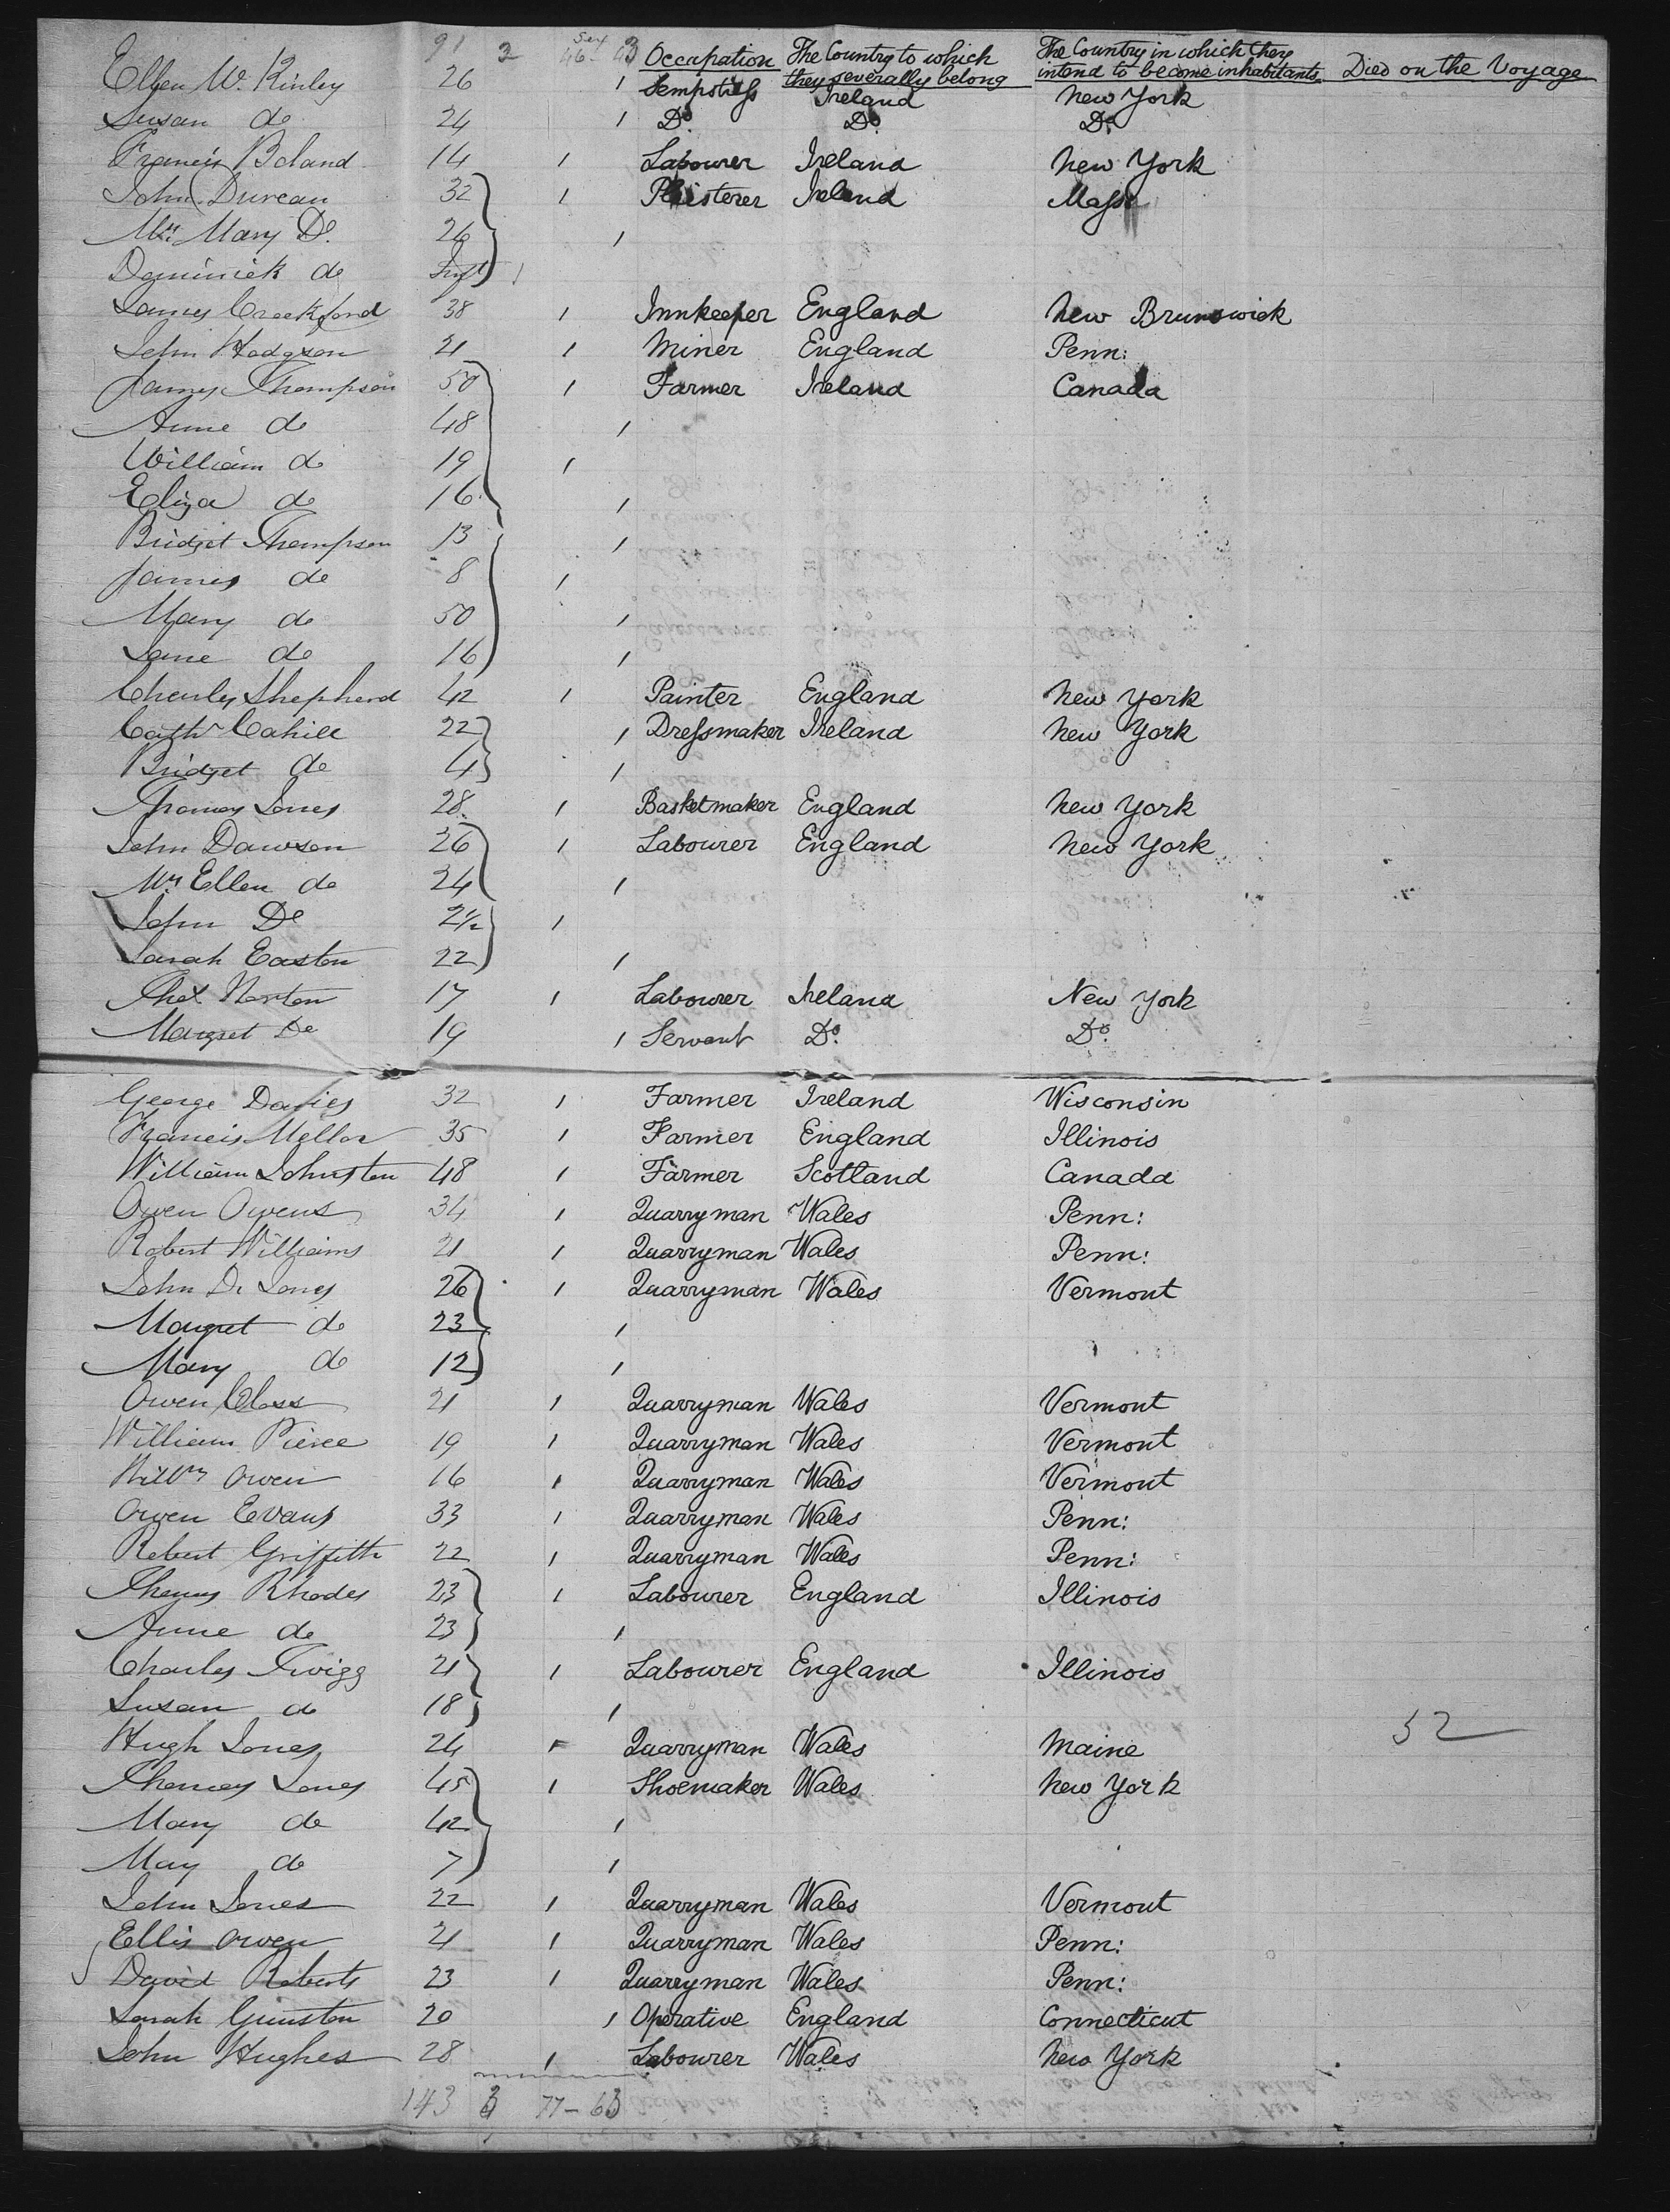 91 2 Sex 46 43 Occupation The Country to which they severally belong The Country in which they intend to become inhabitants Died on the Voyage
Ellen Mc Kinley 26 1 Sempstress Ireland New York
Susan do 24 1 Do Do Do
Francis Boland 14 1 Labourer Ireland New York
John Durcan 32 1 Plaisterer Ireland Mass
Mrs Mary Do. 26 1
Dominick do Inft 1
James Crockford 38 1 Innkeeper England New Brunswick
John Hodgson 21 1 Miner England Penn:
James Thompson 50 1 Farmer Ireland Canada
Anne do 48 1
William do 19 1
Eliza do 16 1
Bridget Thompson 13 1
James do 8 1
Mary do 50 1
Jane do 16 1
Charles Shepherd 42 1 Painter England New York
Cath Cahill 22 1 Dressmaker Ireland New York
Bridget do 4 1
Thomas Jones 28. 1 Basketmaker England New York
John Dawson 26 1 Labourer England New York
Mrs Ellen do 24 1
John Do 2½ 1
Sarah Easton 22 1
Thos Norton 17 1 Labourer Ireland New York
Margret Do 19 1 Servant Do. Do.
George Davies 32 1 Farmer Ireland Wisconsin
Francis Mellor 35 1 Farmer England Illinois
William Johnston 48 1 Farmer Scotland Canada
Owen Owens 34 1 Quarryman Wales Penn:
Robert Williams 21 1 Quarryman Wales Penn:
John D. Jones 26 1 Quarryman Wales Vermont
Margret do 23 1
Mary do 12 1
Owen Closs 21 1 Quarryman Wales Vermont
William Pierce 19 1 Quarryman Wales Vermont
Willm Owen 16 1 Quarryman Wales Vermont
Owen Evans 33 1 Quarryman Wales Penn:
Robert Griffith 22 1 Quarryman Wales Penn:
Thomas Rhodes 23 1 Labourer England Illinois
Anne do 23 1
Charles Twigg 21 1 Labourer England Illinois
Susan do 18 1
Hugh Jones 24 1 Quarryman Wales Maine 52
Thomas Jones 45 1 Shoemaker Wales New York
Mary do 42 1
May do 7 1
John Jones 22 1 Quarryman Wales Vermont
Ellis Owen 21 1 Quarryman Wales Penn:
David Roberts 23 1 Quarryman Wales Penn:
Sarah Gunston 20 1 Operative England Connecticut
John Hughes 28 1 Labourer Wales New York
143 3 77 - 63